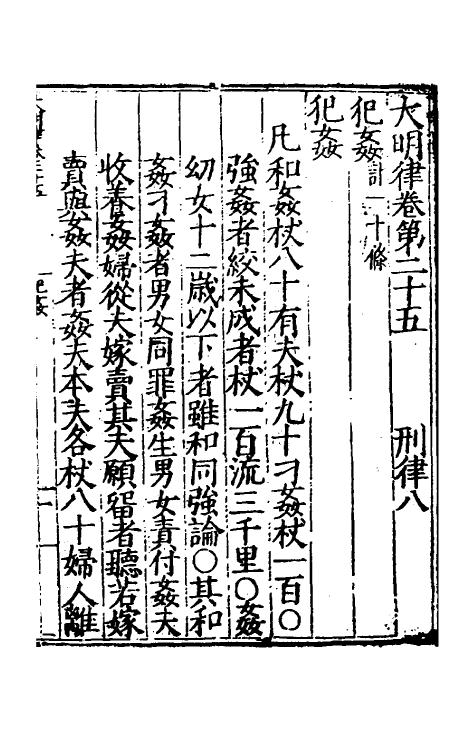 大明律卷第二十五 刑律八
犯姦計一十條
犯姦
凡和姦杖八十有夫杖九十刁姦杖一百○
強姦者絞未成者杖一百流三千里○姦
幼女十二歲以下者雖和同強論○其和
姦刁姦者男女同罪姦生男女責付姦夫
收養姦婦從夫嫁賣其夫願留者聽若嫁
賣與姦夫者姦夫本夫各杖八十婦人離